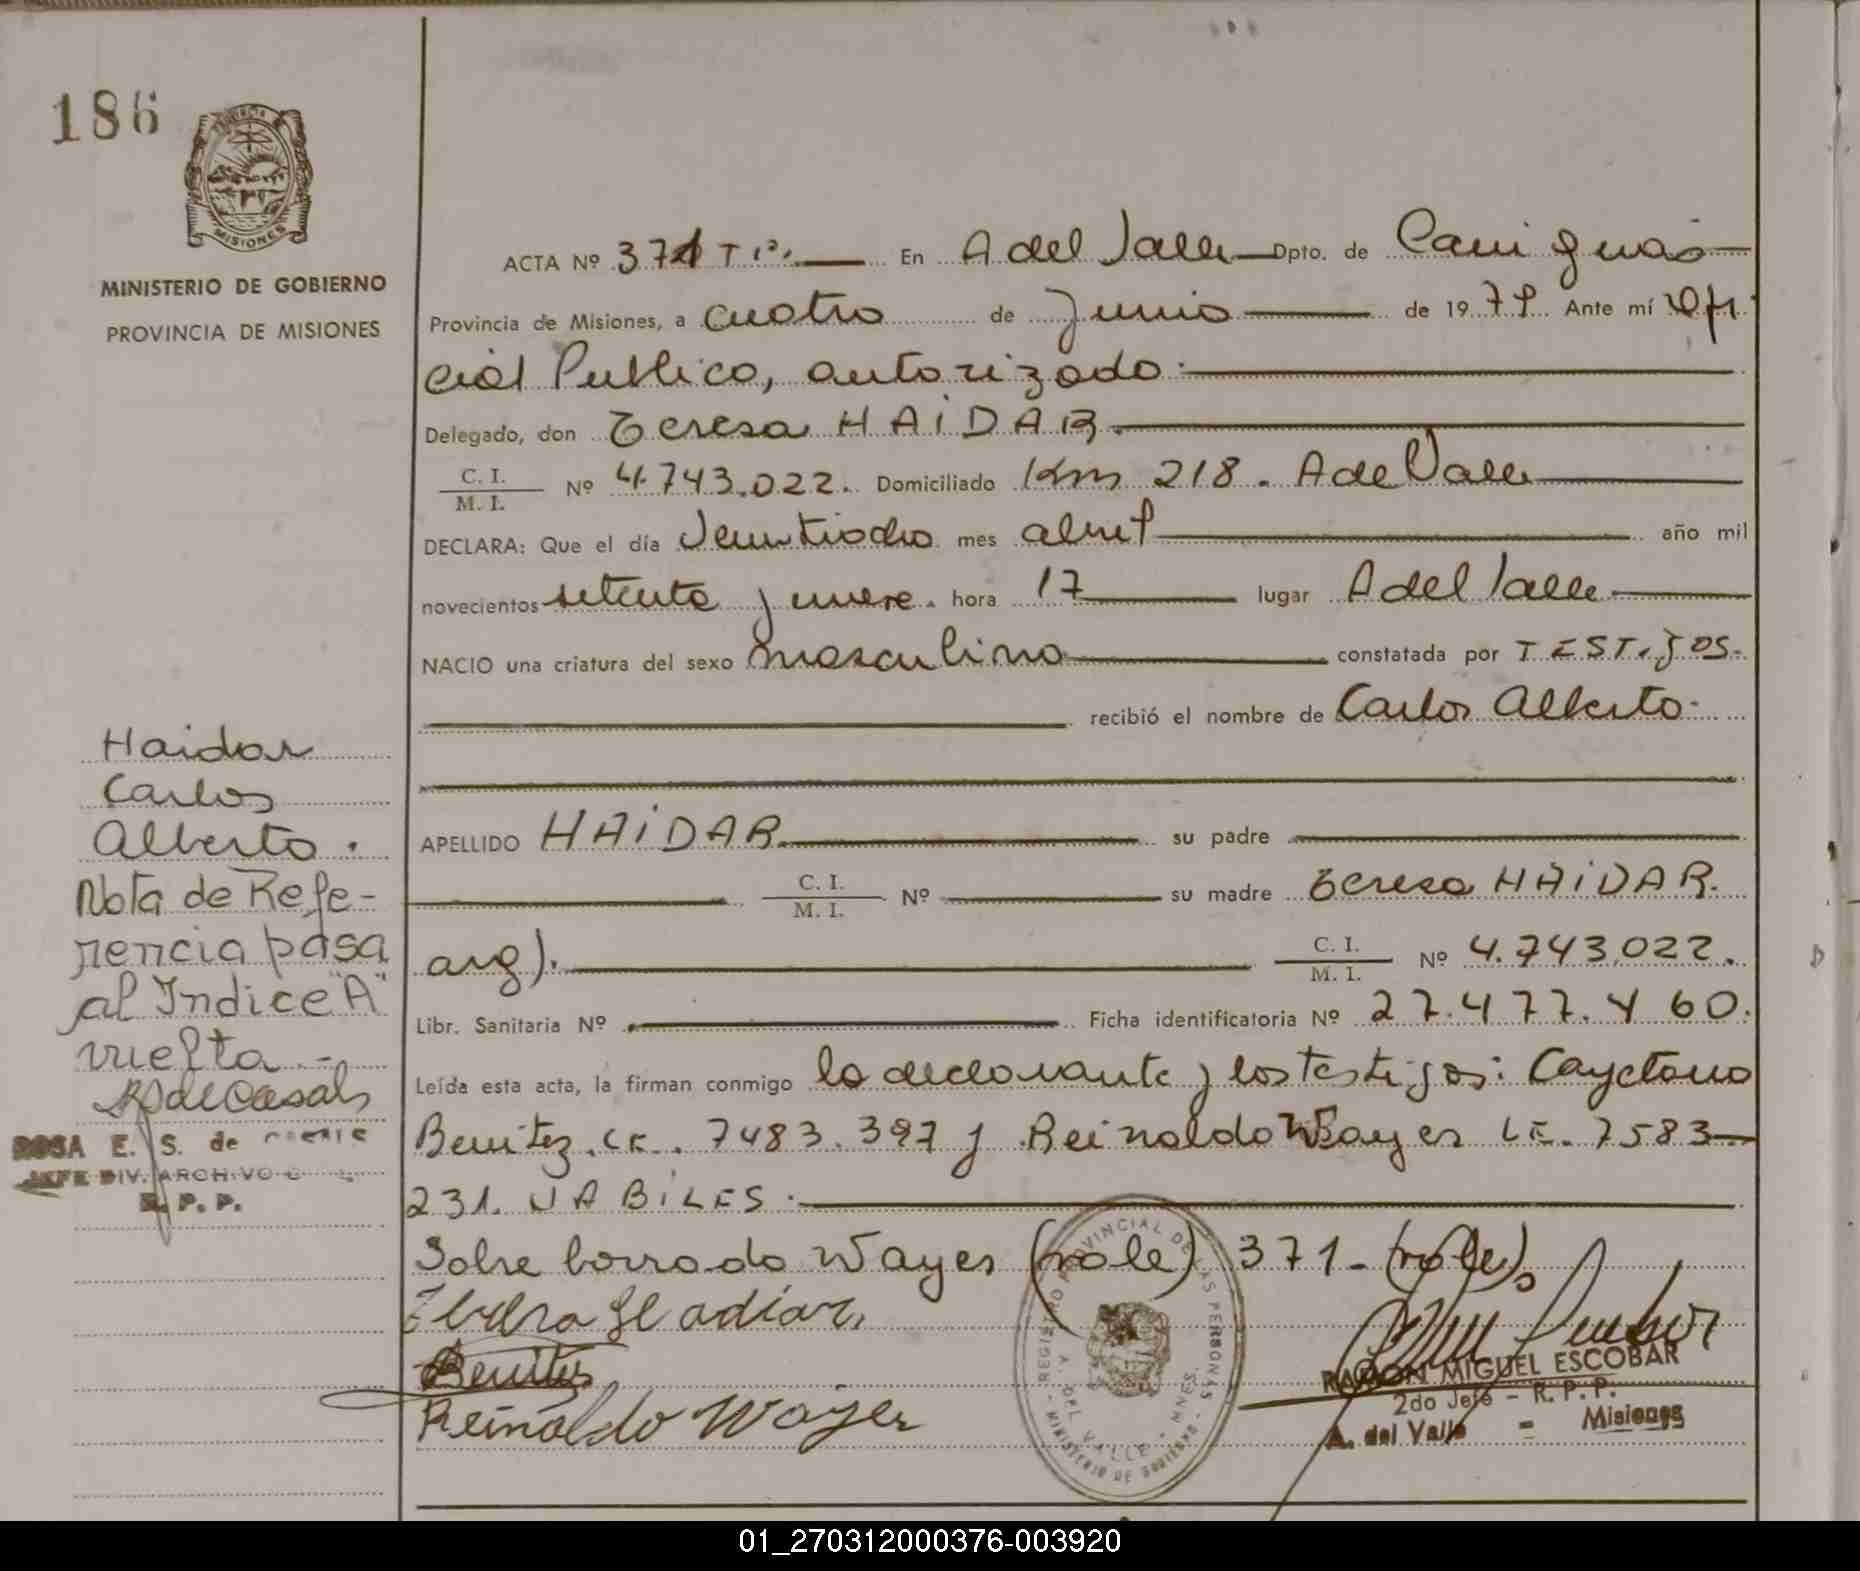 186
PROVINCIA
MISIONES
MINISTERIO DE GOBIERNO
PROVINCIA DE MISIONES
ACTA Nº 371 T 1º. En A del Valle Dpto. de Cainguás
Provincia de Misiones, a cuatro de Junio de 1979 Ante mí Ofi
cial Publico, autorizado
Delegado, don Teresa HAIDAR.
C. I. / M. I. Nº 4.743.022. Domiciliado Km 218. A del Valle
DECLARA: Que el día Veintiocho mes abril año mil
novecientos setenta y nueve. hora 17 lugar A del Valle
NACIO una criatura del sexo masculino constatada por TESTigos.
recibió el nombre de Carlos Alberto.
APELLIDO HAIDAR. su padre
C. I. / M. I. Nº su madre Teresa HAIDAR.
arg). C. I. / M. I. Nº 4.743.022.
Libr. Sanitaria Nº Ficha identificatoria Nº 27.477.460.
Leída esta acta, la firman conmigo la declarante y los testigos: Cayetano
Benitez. LE. 7483.397 y Reinaldo Wayer LE. 7583
231. HABILES.
Sobre borrado Wayes (vale) 371 - (vale).
Benitez
Reinaldo Wayer
Haidar
Carlos
Alberto.
Nota de Refe-
rencia pasa
al Indice "A"
vuelta.-
RSdeCasals
ROSA E. S. de
JEFE DIV. ARCHIVO
R. P. P.
REGISTRO PROVINCIAL DE LAS PERSONAS
A. DEL VALLE - MNES.
MINISTERIO DE GOBIERNO
RAMON MIGUEL ESCOBAR
2do Jefe - R. P. P.
A. del Valle = Misiones
01_270312000376-003920